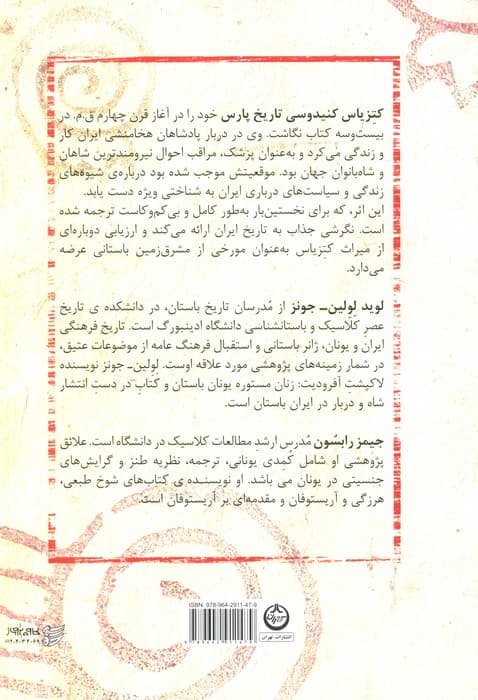 کتزیاس کنیدوسی تاریخ پارس خود را در آغاز قرن چهارم ق.م. در
بیست‌وسه کتاب نگاشت. وی در دربار پادشاهان هخامنشی ایران کار
و زندگی می‌کرد و به‌عنوان پزشک، مراقب احوال نیرومندترین شاهان
و شاه‌بانوان جهان بود. موقعیتش موجب شده بود درباره‌ی شیوه‌های
زندگی و سیاست‌های درباری ایران به شناختی ویژه دست یابد.
این اثر، که برای نخستین‌بار به‌طور کامل و بی‌کم‌وکاست ترجمه شده
است. نگرشی جذاب به تاریخ ایران ارائه می‌کند و ارزیابی دوباره‌ای
از میراث کتزیاس به‌عنوان مورخی از مشرق‌زمین باستانی عرضه
می‌دارد.
لوید لِولین‌ـ جونز از مُدرسان تاریخ باستان، در دانشکده ی تاریخ
عصرِ کلاسیک و باستانشناسی دانشگاه ادینبورگ است. تاریخ فرهنگی
ایران و یونان، ژانر باستانی و استقبال فرهنگ عامه از موضوعات عتیق،
در شمار زمینه‌های پژوهشی مورد علاقه اوست. لِولین‌ـ جونز نویسنده
لاکپشتِ آفرودیت: زنان مستوره یونان باستان و کتابِ در دستِ انتشار
شاه و دربار در ایران باستان است.
جیمز رابسُون مُدرس ارشدِ مطالعات کلاسیک در دانشگاه است. علائق
پژوهشی او شامل کُمِدی یونانی، ترجمه، نظریه طنز و گرایش‌های
جنسیتی در یونان می باشد. او نویسنده‌ی کتاب‌های شوخ طبعی،
هرزگی و آریستوفان و مقدمه‌ای بر آریستوفان است.
ISBN: 978-964-2911-47-9
انتشارات تهران